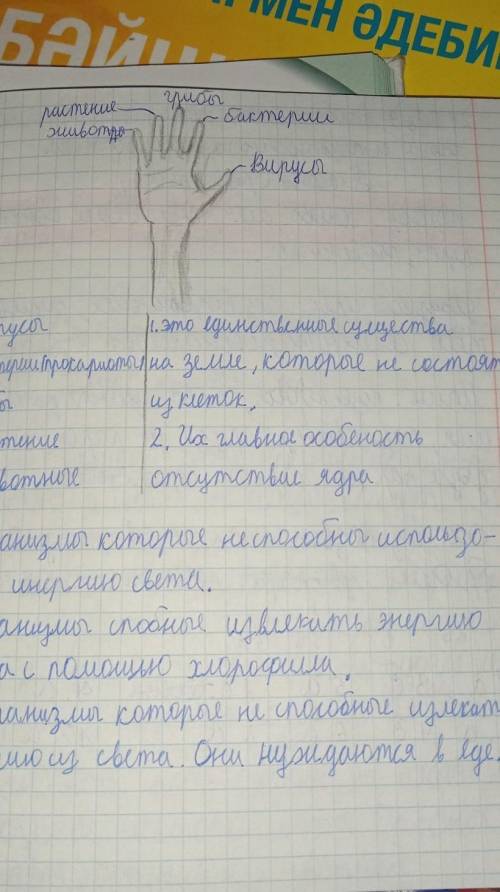 МЕН ӘДЕБИ
БӘЙШ
грибы
растение
бактерии
животн
Вирусы
русы 1. это единственные существа
терии (прокариоты) на земле, которые не состоят
бы из клеток.
тение 2. Их главное особеность
вотные отсутствие ядра
анизмы которые неспособны использо-
инергию света.
анизмы спобные извлекать энергию
а с помощью хлорофилла.
ганизмы которые не способные излекат
ию из света. Они нуждаются в еде.